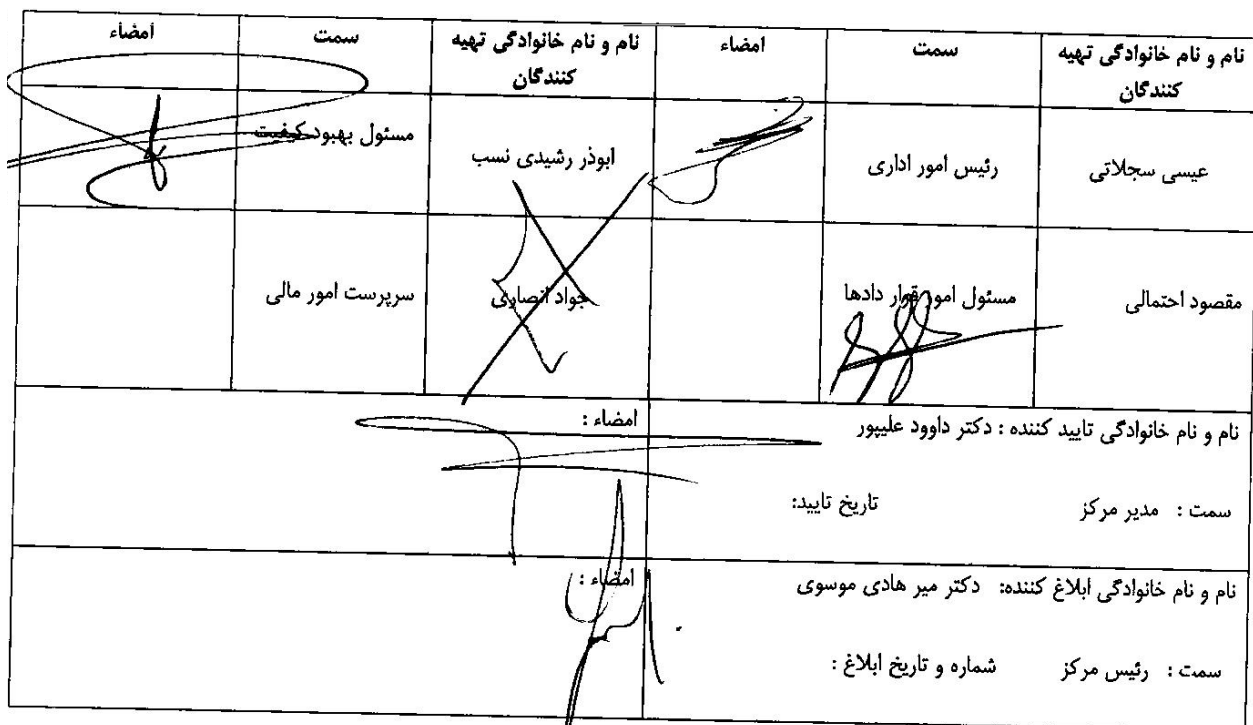 نام و نام خانوادگی تهیه کنندگان
سمت
امضاء
نام و نام خانوادگی تهیه کنندگان
سمت
امضاء
عیسی سجلاتی
رئیس امور اداری
ابوذر رشیدی نسب
مسئول بهبود کیفیت
مقصود احتمالی
مسئول امور قرار دادها
جواد انصاری
سرپرست امور مالی
نام و نام خانوادگی تایید کننده : دکتر داوود علیپور
امضاء :
سمت : مدیر مرکز تاریخ تایید:
نام و نام خانوادگی ابلاغ کننده: دکتر میر هادی موسوی
امضاء :
سمت : رئیس مرکز شماره و تاریخ ابلاغ :